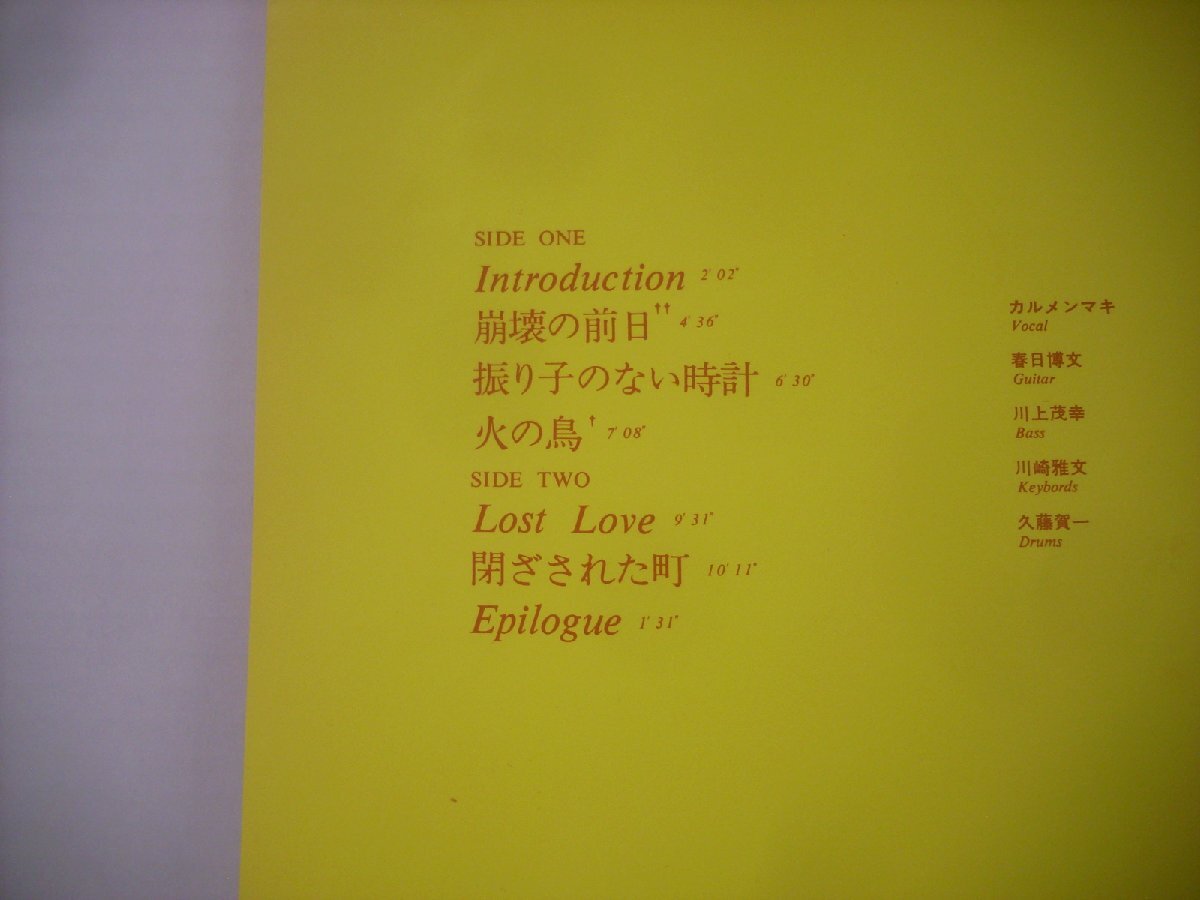 SIDE ONE
Introduction 2' 02"
崩壊の前日†† 4' 36"
振り子のない時計 6' 30"
火の鳥† 7' 08"
SIDE TWO
Lost Love 9' 31"
閉ざされた町 10' 11"
Epilogue 1' 31"
カルメンマキ
Vocal
春日博文
Guitar
川上茂幸
Bass
川崎雅文
Keybords
久藤賀一
Drums